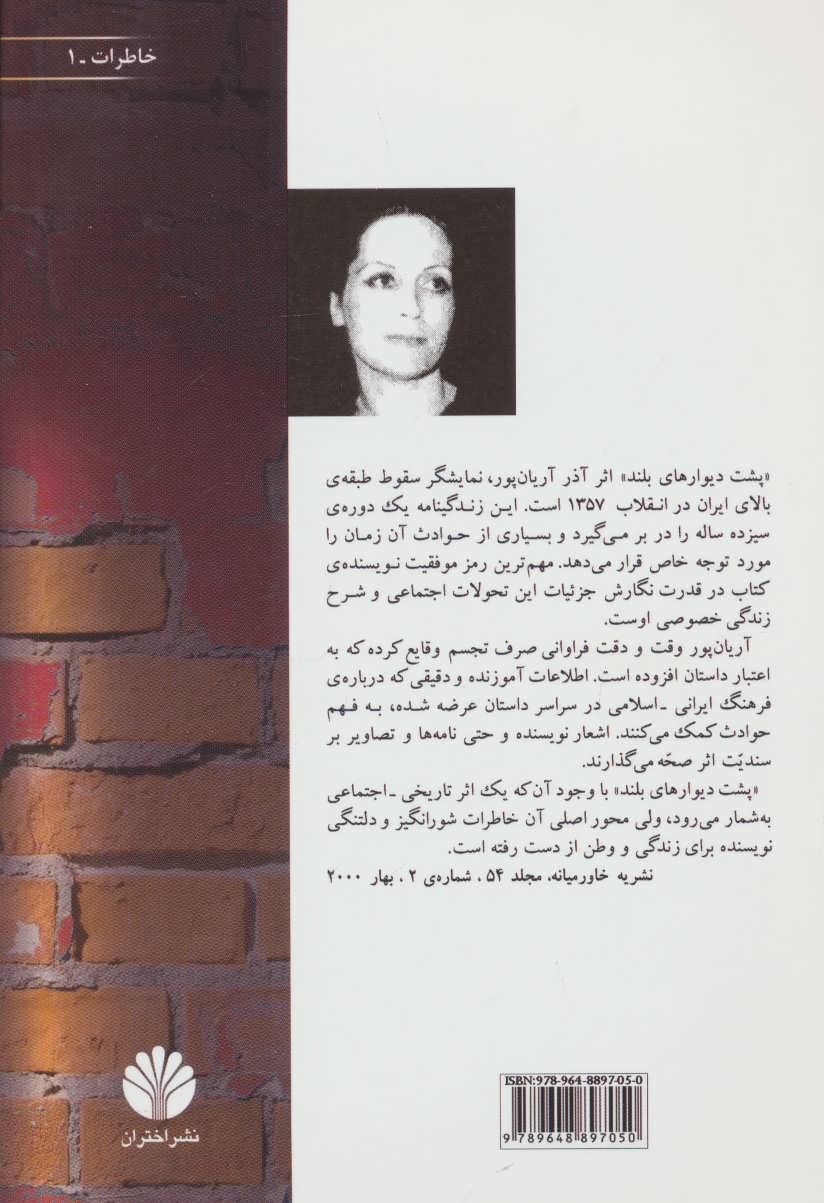 خاطرات - ۱
«پشت دیوارهای بلند» اثر آذر آریان‌پور، نمایشگر سقوط طبقه‌ی
بالای ایران در انقلاب ۱۳۵۷ است. این زندگینامه یک دوره‌ی
سیزده ساله را در بر می‌گیرد و بسیاری از حوادث آن زمان را
مورد توجه خاص قرار می‌دهد. مهم‌ترین رمز موفقیت نویسنده‌ی
کتاب در قدرت نگارش جزئیات این تحولات اجتماعی و شرح
زندگی خصوصی اوست.
آریان‌پور وقت و دقت فراوانی صرف تجسم وقایع کرده که به
اعتبار داستان افزوده است. اطلاعات آموزنده و دقیقی که درباره‌ی
فرهنگ ایرانی - اسلامی در سراسر داستان عرضه شده، به فهم
حوادث کمک می‌کنند. اشعار نویسنده و حتی نامه‌ها و تصاویر بر
سندیّت اثر صحّه می‌گذارند.
«پشت دیوارهای بلند» با وجود آن‌که یک اثر تاریخی - اجتماعی
به‌شمار می‌رود، ولی محور اصلی آن خاطرات شورانگیز و دلتنگی
نویسنده برای زندگی و وطن از دست رفته است.
نشریه خاورمیانه، مجلد ۵۴، شماره‌ی ۲، بهار ۲۰۰۰
ISBN:978-964-8897-05-0
9 789648 897050
نشر اختران